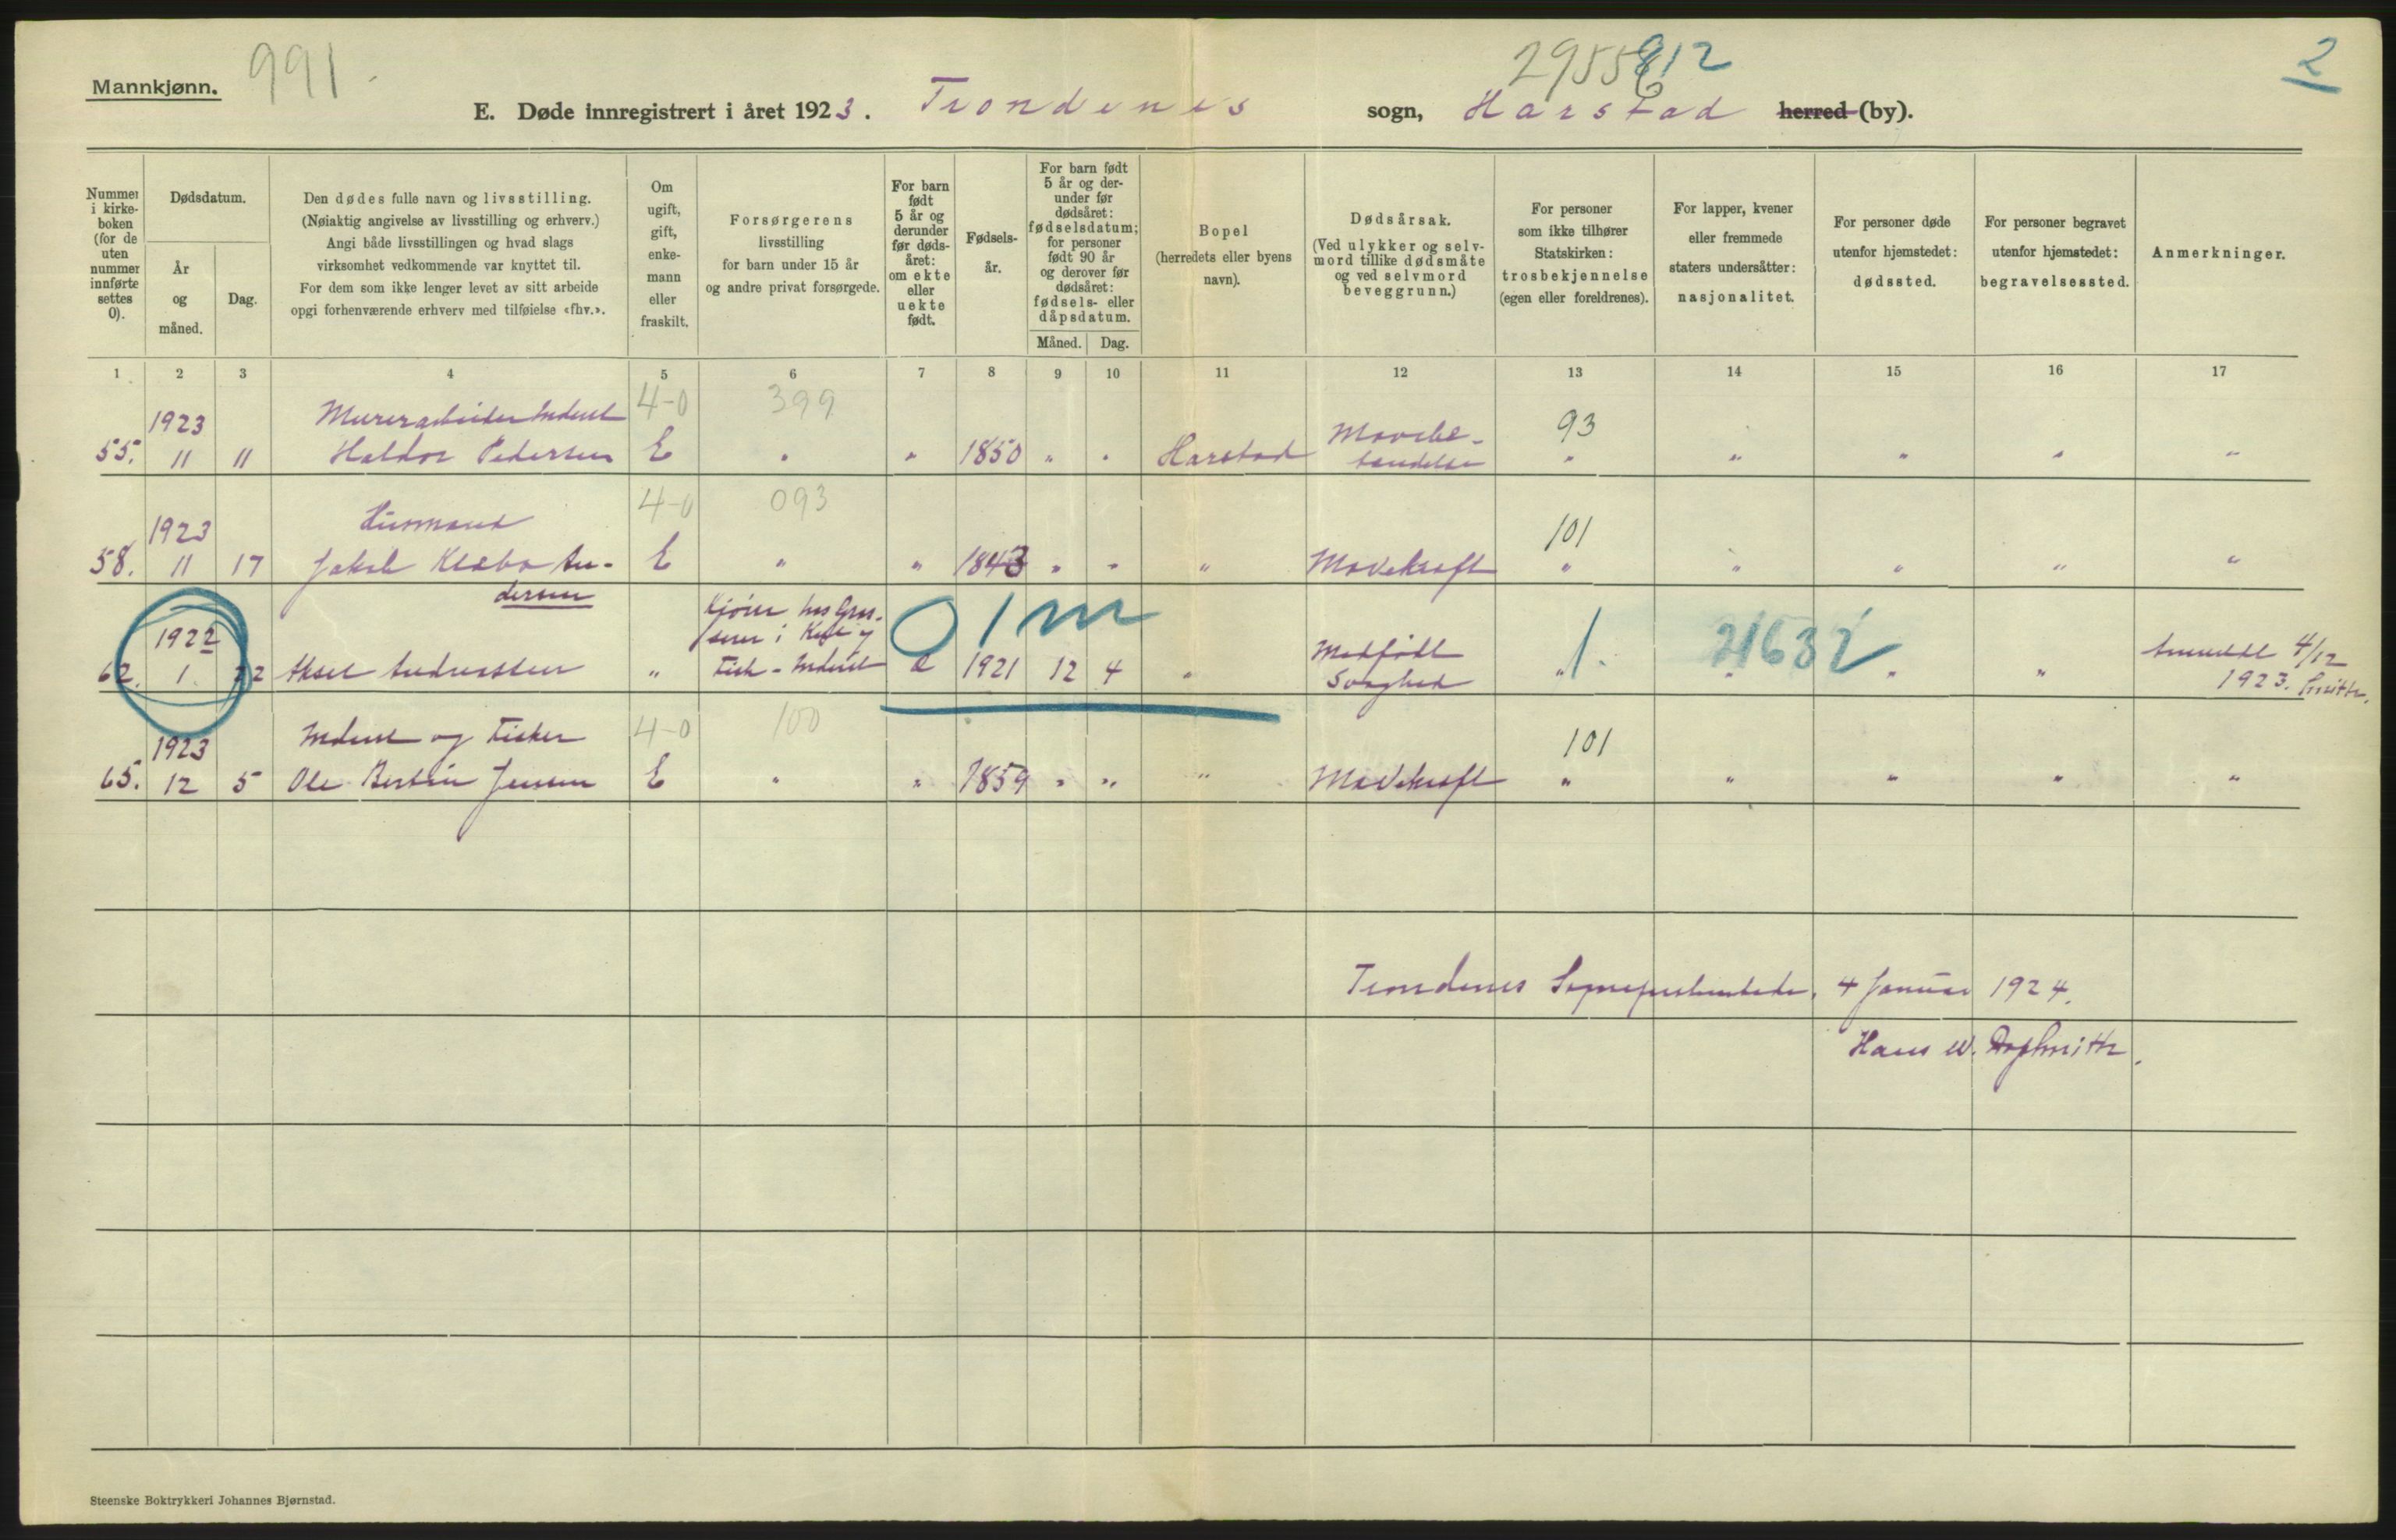 Mannkjønn.
991.
29556
812
2
E. Døde innregistrert i året 1923. Trondenes sogn, Harstad herred (by).
Nummer i kirke- boken (for de uten nummer innførte settes 0).
Dødsdatum.
År og måned.
Dag.
Den dødes fulle navn og livsstilling.
(Nøiaktig angivelse av livsstilling og erhverv.)
Angi både livsstillingen og hvad slags
virksomhet vedkommende var knyttet til.
For dem som ikke lenger levet av sitt arbeide
opgi forhenværende erhverv med tilføielse «fhv.».
Om ugift, gift, enke- mann eller fraskilt.
Forsørgerens
livsstilling
for barn under 15 år
og andre privat forsørgede.
For barn født 5 år og derunder før døds- året: om ekte eller uekte født.
Fødsels- år.
For barn født 5 år og der- under før dødsåret: fødselsdatum; for personer født 90 år og derover før dødsåret: fødsels- eller dåpsdatum.
Måned. Dag.
Bopel
(herredets eller byens
navn).
Dødsårsak.
(Ved ulykker og selv-
mord tillike dødsmåte
og ved selvmord
beveggrunn.)
For personer
som ikke tilhører
Statskirken:
trosbekjennelse
(egen eller foreldrenes).
For lapper, kvener
eller fremmede
staters undersåtter:
nasjonalitet.
For personer døde
utenfor hjemstedet:
dødssted.
For personer begravet
utenfor hjemstedet:
begravelsessted.
Anmerkninger.
1 2 3 4 5 6 7 8 9 10 11 12 13 14 15 16 17
1923 Murerarbeider Inderst 4-0 399 Mavebe- 93
55. 11 11 Haldor Pedersen E " " 1850 " " Harstad tændelse " " " " "
1923 Husmand 4-0 093 101
58. 11 17 Jakob Klæbo An- E " " 1843 " " " Mavekræft " " " " "
dersen
1922 Kjører hos Gros-
01m 1. 21632
62. 1. 22 Aksel Andreassen " Fisk - Inderst e 1921 12 4 " Medfødt Svaghed " " " " Anmeldt 4/12
1923. Smith.
1923 Inderst og Fisker 4-0 100 101
65. 12 5 Ole Bertin Jensen E " " 1859 " " " Mavekræft " " " " "
Trondenes Sogneprestembede, 4 Januar 1924.
Hans W. Smith.
Steenske Boktrykkeri Johannes Bjørnstad.